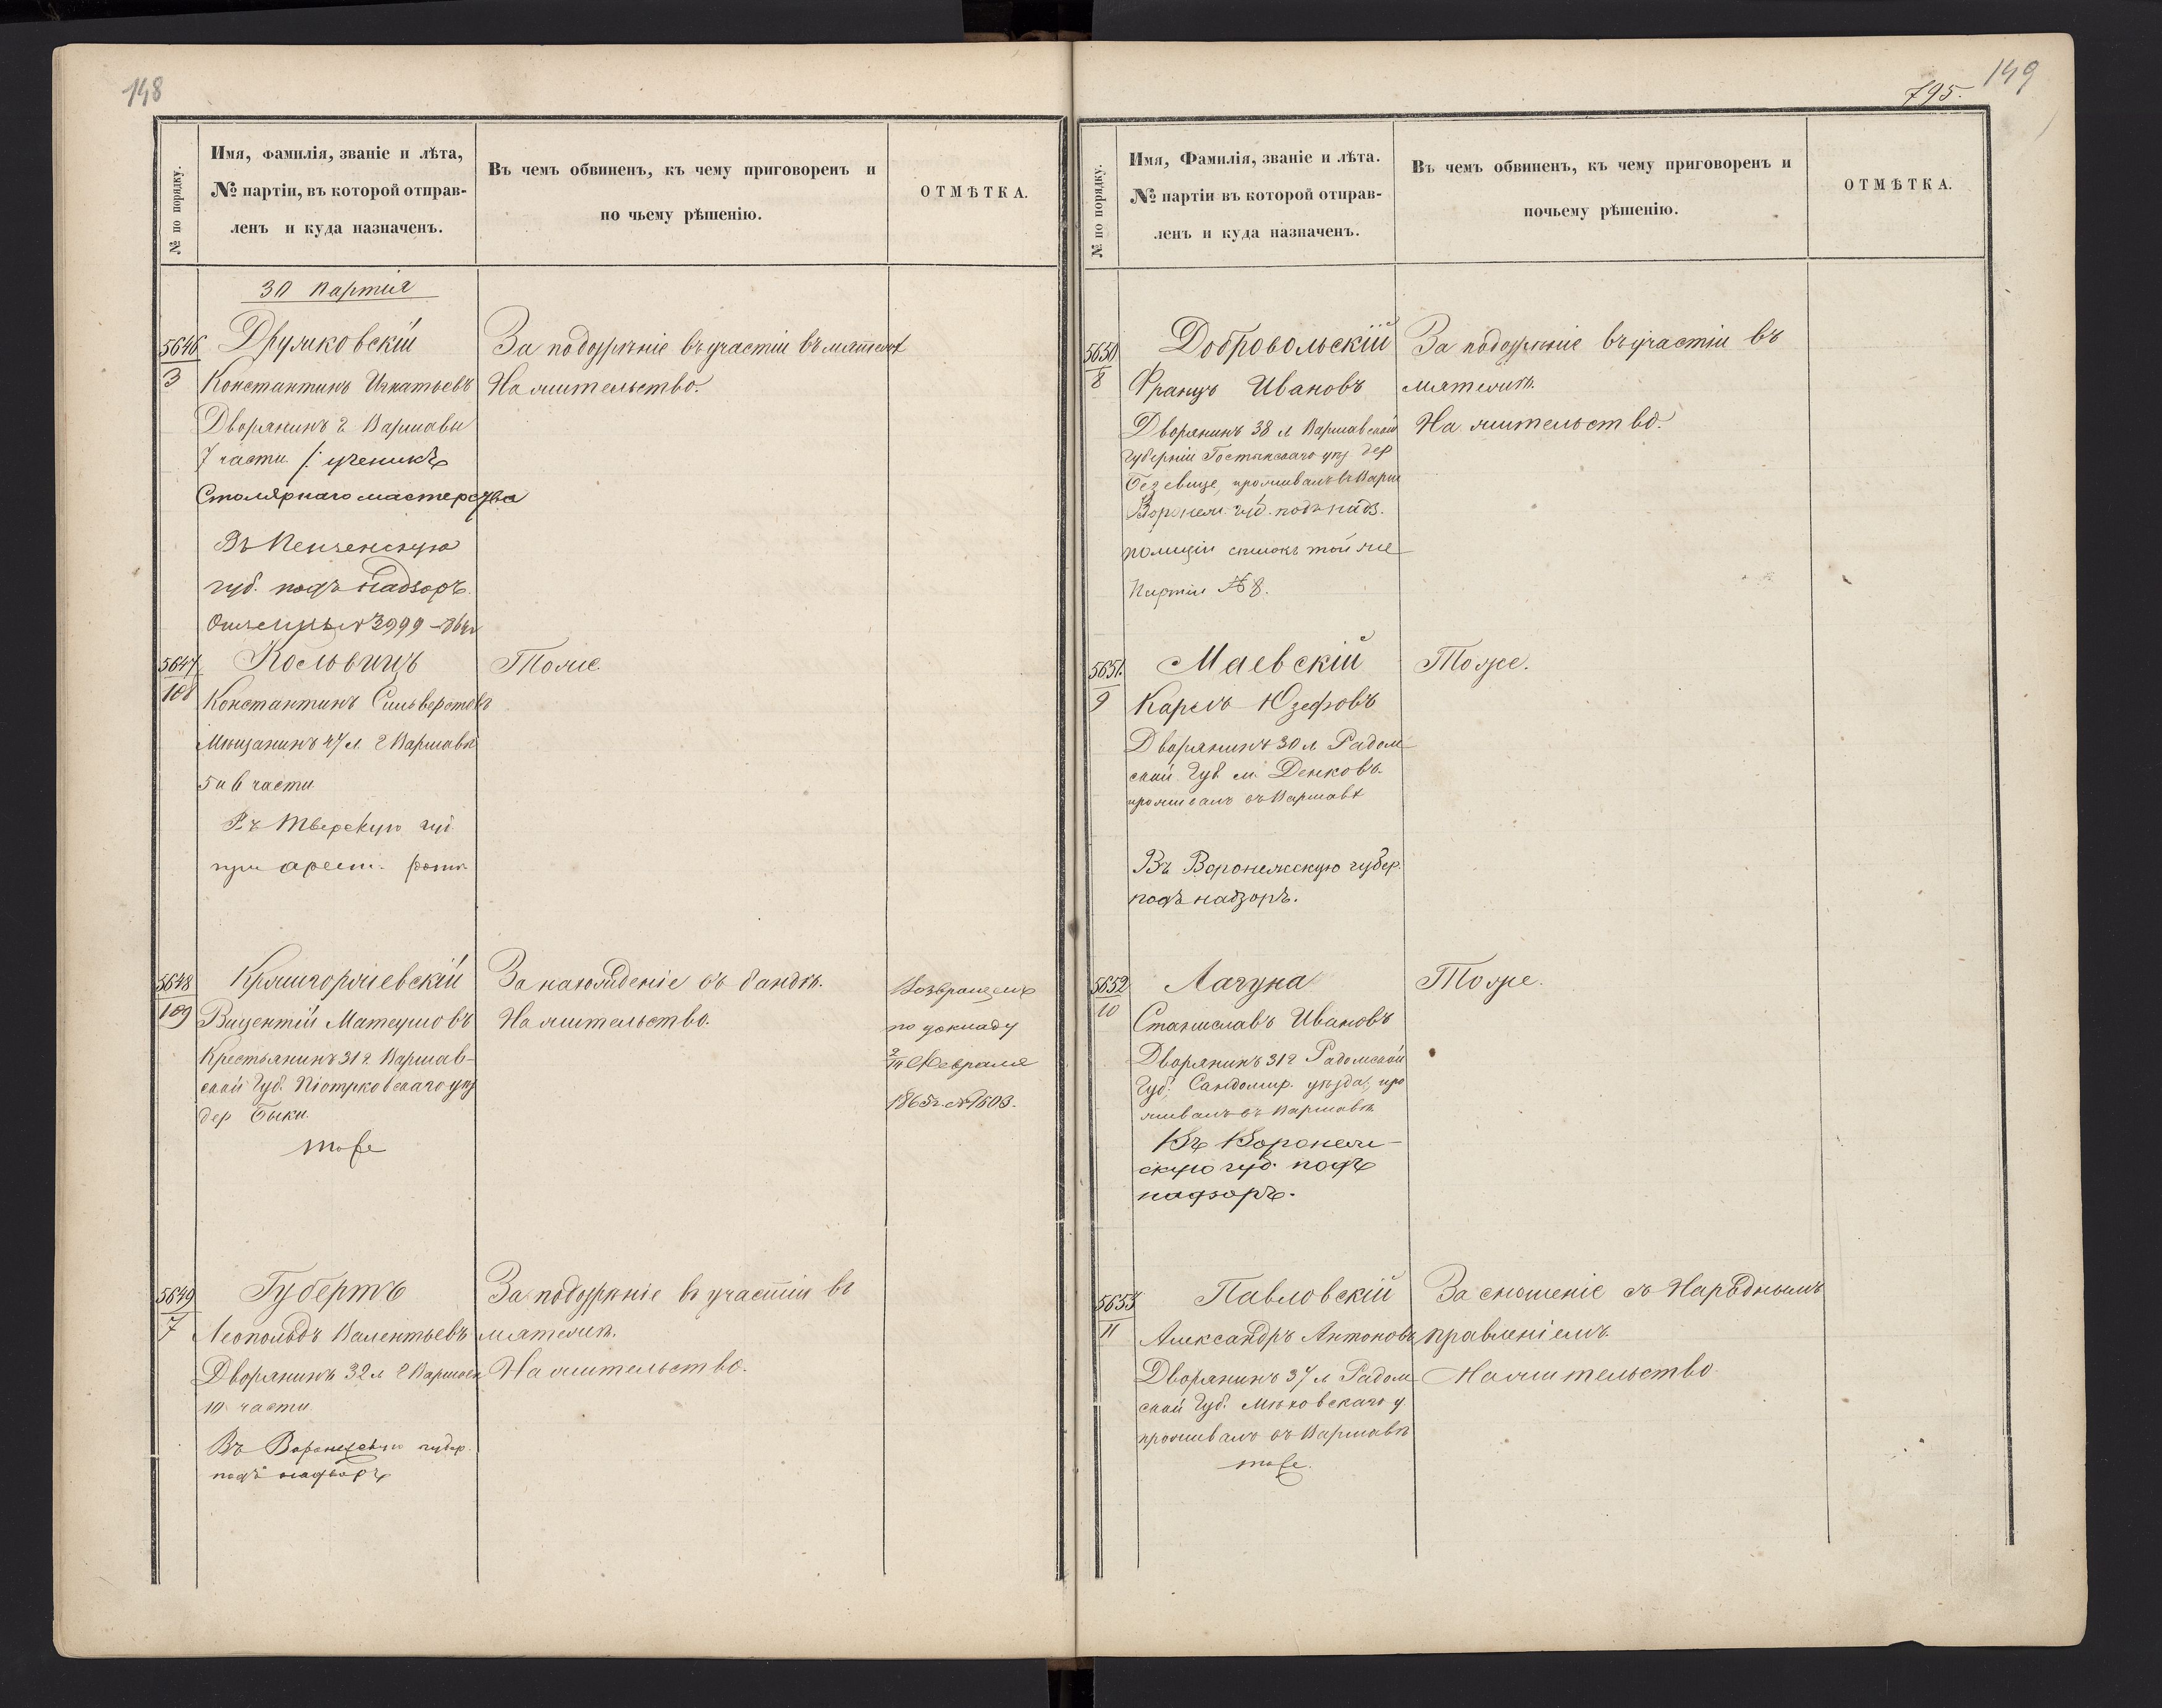 148
№ по порядку.
Имя, Фамилія, званіе и лѣта,
№ партіи, въ которой отправ-
ленъ и куда назначенъ.
Въ чемъ обвиненъ, къ чему приговоренъ и
по чьему рѣшенію.
ОТМѢТКА.
30 партія
5646
3
Друмковскій
Константинъ Игнатьевъ
Дворянинъ г Варшавы
7 части /: ученикъ
Столярнаго мастерства
Въ Пензенскую
губ. подъ надзоръ.
№ 3999
За подозрѣніе въ участіи въ мятежѣ
На жительство.
5647
108
Константинъ Сильверстовъ
Мѣщанинъ 47 л г Варшавы
5 и 6 части
Въ Тверскую губ
при арест. ротѣ
Тоже.
5648
109
Викентій Матеушовъ
Крестьянинъ 31 г. Варшав-
ской Губ. Піотрковскаго уѣз
дер Быки.
тоже
За нахожденіе въ бандѣ.
На жительство.
Возвращенъ
по докладу
Февраля
1865 г. № 1603.
5649
7
Губертъ
Леопольдъ Валентьевъ
Дворянинъ 32 л г Варшавы
10 части
Въ Воронежскую губер.
подъ надзоръ
За подозрѣніе въ участіи въ
мятежѣ.
На жительство.
149
795.
№ по порядку.
Имя, Фамилія, званіе и лѣта.
№ партіи въ которой отправ-
ленъ и куда назначенъ.
Въ чемъ обвиненъ, къ чему приговоренъ и
почьему рѣшенію.
ОТМѢТКА.
5650
8
Добровольскій
Францъ Ивановъ
Дворянинъ 38 л Варшавской
Губерніи Гостынскаго уѣз дер
проживалъ въ Варш
Воронеж. губ. подъ надз.
полиціи списокъ той же
Партіи № 8.
За подозрѣніе въ участіи въ
мятежѣ.
На жительство.
5651.
9
Маевскій
Карлъ Юзефовъ
Дворянинъ 30 л Радом-
ской Губ м. Денковъ.
проживалъ въ Варшавѣ
Въ Воронежскую губер.
подъ надзоръ.
Тоже.
5652
10
Лагуна
Станиславъ Ивановъ
Дворянинъ 31 г Радомской
Губ. Сандомир. уѣзда, про
живалъ въ Варшавѣ
Въ Воронеж-
скую губ. подъ
надзоръ.
Тоже.
5653
11
Павловскій
Александръ Антоновъ
Дворянинъ 37 л Радом-
ской Губ. Мѣховскаго у.
проживалъ въ Варшавѣ
тоже.
За сношеніе съ Народнымъ
правленіемъ.
На жительство.